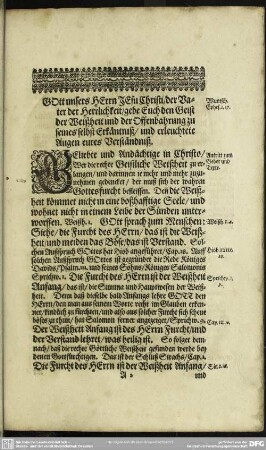 GOtt unsers HErrn JEsu Christi/der Va-
ter der Herrlichkeit/gebe Euch den Geist
der Weißheit und der Offenbahrung zu
seines selbst Erkäntnuß/ und erleuchtete
Augen eures Verständnuß.
Wunsch.
Ephes. 1. 17.
GEliebte und Andächtige in Christo/
Wer die rechte Geistliche Weißheit zu er-
langen/ und darinnen je mehr und mehr zuzu-
nehmen gedencket/ der muß sich der wahren
Gottesfurcht befleissen. Den die Weiß-
heit kömmet nicht in eine boßhafftige Seele/ und
wohnet nicht in einem Leibe der Sünden unter-
worffen. Weißh. 1. GOtt sprach zum Menschen:
Siehe/ die Furcht des HErrn/ das ist die Weiß-
heit/ und meiden das Böse/ das ist Verstand. Sol-
chen Außspruch Gottes hat Hiob angeführet/ Cap. 28. Auff
solchen Außspruch GOttes ist gegründet die Rede Königes
Davids/ Psalm. und seines Sohns/ Königes Salomonis
Sprichw. 1. Die Furcht des HErrn ist der Weißheit
Anfang/ das ist/ die Summa und Hauptwesen der Weiß-
heit. Denn daß dieselbe bald Anfangs lehre GOTT den
HErrn/ den man aus seinem Worte recht im Glauben erken-
net/ kindlich zu fürchten/ und also aus solcher Furcht sich scheue
böses zu thun/ hat Salomon ferner angezeiget/ Sprichw. 9.
Der Weißheit Anfang ist des HErrn Furcht/ und
der Verstand lehret/ was heilig ist. So folget dem-
nach/ daß die rechte Göttliche Weißheit gefunden werde bey
denen Gottfürchtigen. Das ist der Schluß Syrachs/ Cap. 1.
Die Furcht des HErrn ist der Weißheit Anfang/
A 2
und